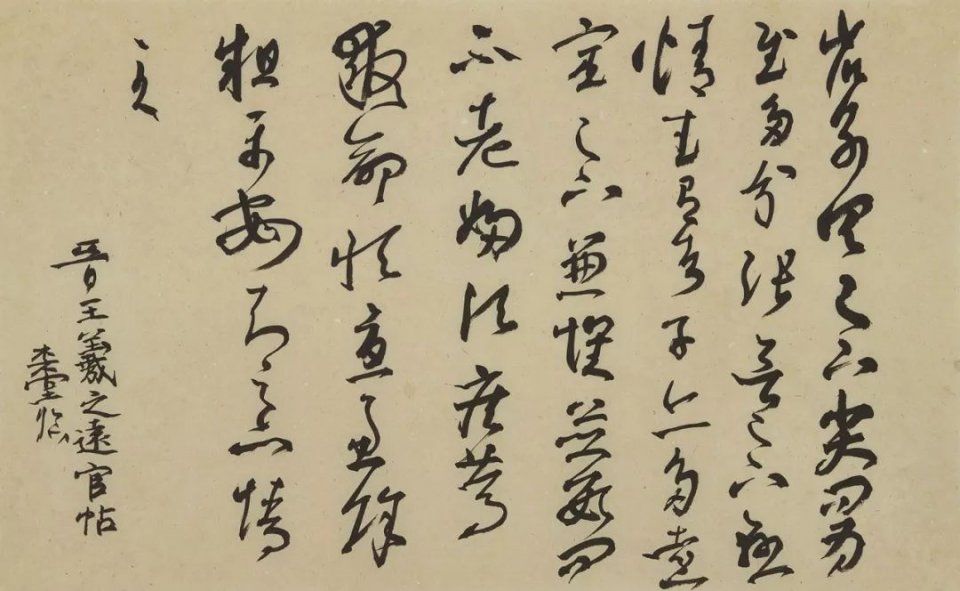 省别具足下小大問為
慰多分張念足下懸
情武昌諸子亦多遠
宦足下兼懷並數問
不老婦頃疾篤
救命恒憂慮餘
粗平安知足下情
至
晉王羲之遠官帖
木堂臨